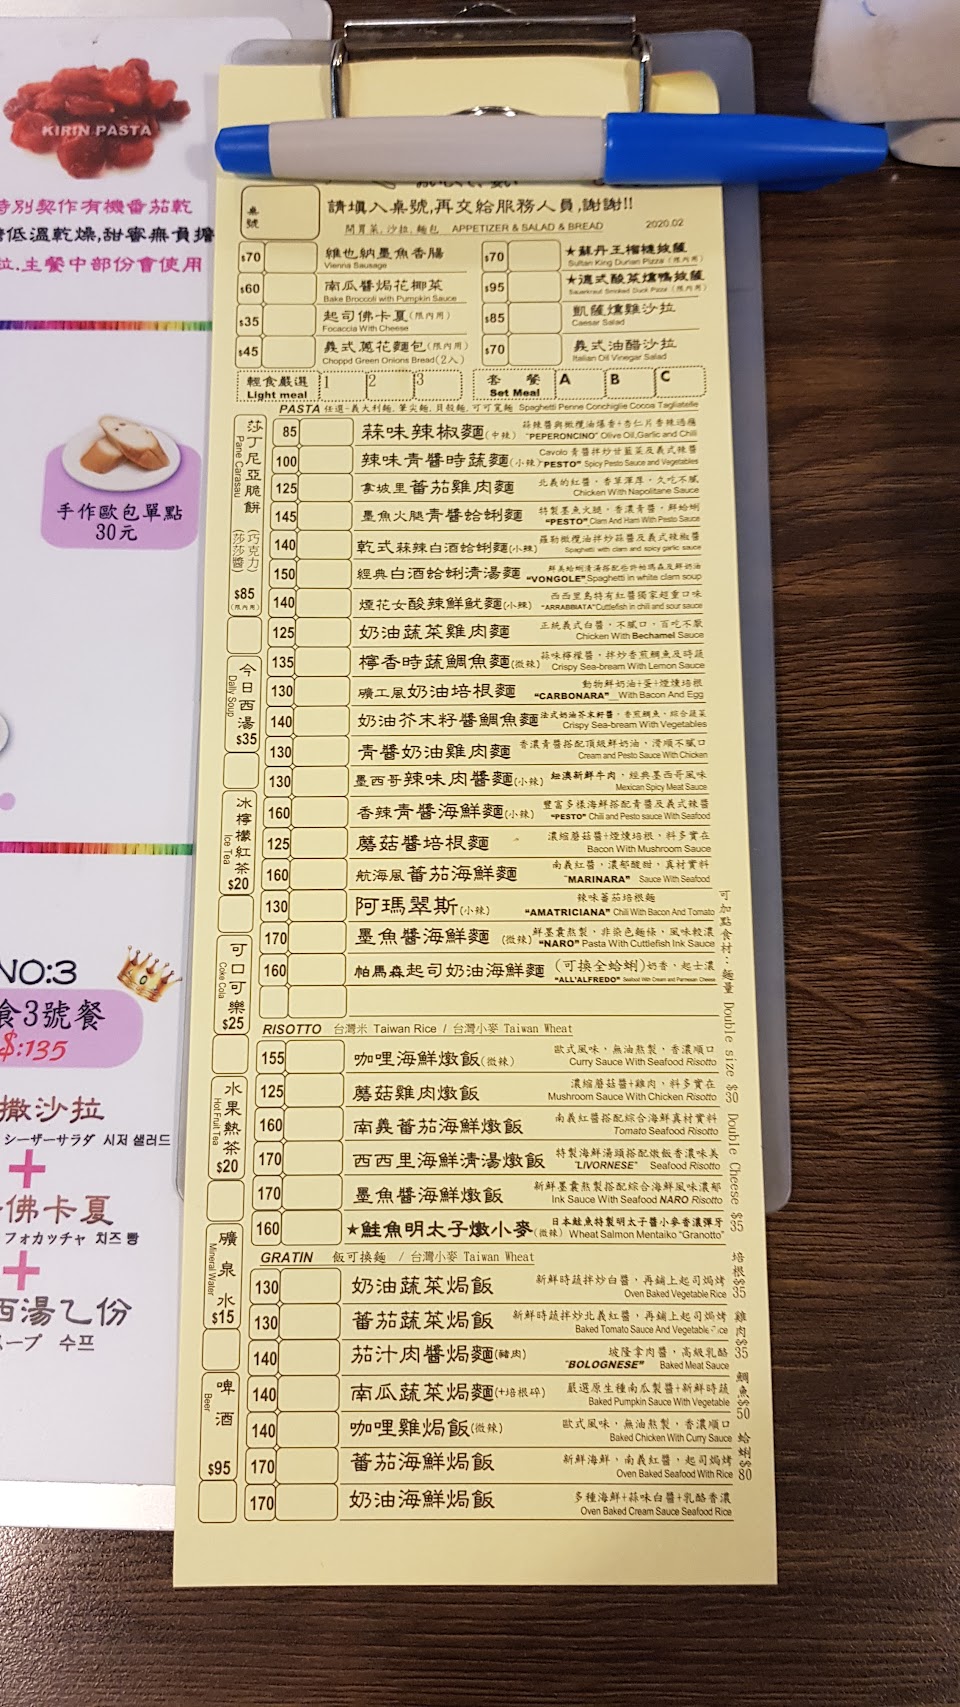 KIRIN PASTA
特別契作有機番茄乾
低溫乾燥,甜審無負擔
拉.主餐中部份會使用
手作歐包單點
30元
NO:3
食3號餐
$:135
撒沙拉
シーザーサラダ 시저 샐러드
+
佛卡夏
フォカッチャ 치즈 빵
+
西湯乙份
スープ 수프
桌號
請填入桌號,再交給服務人員,謝謝!!
開胃菜,沙拉,麵包 APPETIZER & SALAD & BREAD
2020.02
$70 維也納墨魚香腸
Vienna Sausage
$60 南瓜醬焗花椰菜
Bake Broccoli with Pumpkin Sauce
$35 起司佛卡夏(限內用)
Focaccia With Cheese
$45 義式蔥花麵包(限內用)
Choppd Green Onions Bread(2入)
$70 ★蘇丹王榴槤披薩
Sultan King Durian Pizza (限內用)
$95 ★德式酸菜燻鴨披薩
Sauerkraut Smoked Duck Pizza (限內用)
$85 凱薩燻雞沙拉
Caesar Salad
$70 義式油醋沙拉
Italian Oil Vinegar Salad
輕食嚴選 1 2 3
Light meal
套餐 A B C
Set Meal
PASTA 任選-義大利麵,筆尖麵,貝殼麵,可可寬麵 Spaghetti Penne Conchiglie Cocoa Tagliatelle
85 蒜味辣椒麵(中辣) 蒜辣醬與橄欖油爆香+杏仁片香辣過癮
"PEPERONCINO" Olive Oil,Garlic and Chili
100 辣味青醬時蔬麵(小辣) Cavolo 青醬拌炒甘藍菜及義式辣醬
"PESTO" Spicy Pesto Sauce and Vegetables
125 拿坡里蕃茄雞肉麵 北義的紅醬,香草渾厚,久吃不膩
Chicken With Napolitane Sauce
145 墨魚火腿青醬蛤蜊麵 特製墨魚火腿,香濃青醬,鮮蛤蜊
"PESTO" Clam And Ham With Pesto Sauce
140 乾式蒜辣白酒蛤蜊麵(小辣) 羅勒橄欖油拌炒蒜醬及義式辣椒醬
Spaghetti with clam and spicy garlic sauce
150 經典白酒蛤蜊清湯麵 鮮美蛤蜊清湯搭配些許帕瑪森及鮮奶油
"VONGOLE" Spaghetti in white clam soup
140 煙花女酸辣鮮魷麵(小辣) 西西里島特有紅醬獨家超重口味
"ARRABBIATA"Cuttlefish in chili and sour sauce
125 奶油蔬菜雞肉麵 正統義式白醬,不膩口,百吃不厭
Chicken With Bechamel Sauce
135 檸香時蔬鯛魚麵(微辣) 蒜味檸檬醬,拌炒香煎鯛魚及時蔬
Crispy Sea-bream With Lemon Sauce
130 礦工風奶油培根麵 動物鮮奶油+蛋+煙燻培根
"CARBONARA" With Bacon And Egg
140 奶油芥末籽醬鯛魚麵 法式奶油芥末籽醬,香煎鯛魚,綜合蔬菜
Crispy Sea-bream With Vegetables
130 青醬奶油雞肉麵 香濃青醬搭配頂級鮮奶油,滑順不膩口
Cream and Pesto Sauce With Chicken
130 墨西哥辣味肉醬麵(小辣) 紐澳新鮮牛肉,經典墨西哥風味
Mexican Spicy Meat Sauce
160 香辣青醬海鮮麵(小辣) 豐富多樣海鮮搭配青醬及義式辣醬
"PESTO" Chili and Pesto sauce With Seafood
125 蘑菇醬培根麵 濃縮蘑菇醬+煙燻培根,料多實在
Bacon With Mushroom Sauce
160 航海風蕃茄海鮮麵 南義紅醬,濃郁酸甜,真材實料
"MARINARA" Sauce With Seafood
130 阿瑪翠斯(小辣) 辣味蕃茄培根麵
"AMATRICIANA" Chili With Bacon And Tomato
170 墨魚醬海鮮麵 (微辣) 鮮墨囊熬製,非染色麵條,風味較濃
"NARO" Pasta With Cuttlefish Ink Sauce
160 帕馬森起司奶油海鮮麵 (可換全蛤蜊) 奶香,起士濃
"ALL'ALFREDO" Seafood With Cream and Parmesan Cheese
RISOTTO 台灣米 Taiwan Rice / 台灣小麥 Taiwan Wheat
155 咖哩海鮮燉飯(微辣) 歐式風味,無油熬製,香濃順口
Curry Sauce With Seafood Risotto
125 蘑菇雞肉燉飯 濃縮蘑菇醬+雞肉,料多實在
Mushroom Sauce With Chicken Risotto
160 南義蕃茄海鮮燉飯 南義紅醬搭配綜合海鮮真材實料
Tomato Seafood Risotto
170 西西里海鮮清湯燉飯 特製海鮮湯頭搭配燉飯香濃味美
"LIVORNESE" Seafood Risotto
170 墨魚醬海鮮燉飯 新鮮墨囊熬製搭配綜合海鮮風味濃郁
Ink Sauce With Seafood NARO Risotto
160 ★鮭魚明太子燉小麥(微辣) 日本鮭魚特製明太子醬小麥香濃彈牙
Wheat Salmon Mentaiko "Granotto"
GRATIN 飯可換麵 / 台灣小麥 Taiwan Wheat
130 奶油蔬菜焗飯 新鮮時蔬拌炒白醬,再鋪上起司焗烤
Oven Baked Vegetable Rice
130 蕃茄蔬菜焗飯 新鮮時蔬拌炒北義紅醬,再鋪上起司焗烤
Baked Tomato Sauce And Vegetable Rice
140 茄汁肉醬焗麵(豬肉) 坡隆拿肉醬,高級乳酪
"BOLOGNESE" Baked Meat Sauce
140 南瓜蔬菜焗麵(+培根碎) 嚴選原生種南瓜製醬+新鮮時蔬
Baked Pumpkin Sauce With Vegetable
140 咖哩雞焗飯(微辣) 歐式風味,無油熬製,香濃順口
Baked Chicken With Curry Sauce
170 蕃茄海鮮焗飯 新鮮海鮮,南義紅醬,起司焗烤
Oven Baked Seafood With Rice
170 奶油海鮮焗飯 多種海鮮+蒜味白醬+乳酪香濃
Oven Baked Cream Sauce Seafood Rice
莎丁尼亞脆餅 (巧克力) (莎莎醬)
Pane Carasau
$85
(限內用)
今日西湯
Daily Soup
$35
冰檸檬紅茶
Ice Tea
$20
可口可樂
Coke Cola
$25
水果熱茶
Hot Fruit Tea
$20
礦泉水
Mineral Water
$15
啤酒
Beer
$95
可加點食材:麵量 Double size $30 Double Cheese $35 培根$35 雞肉$35 鯛魚$50 蛤蜊$80